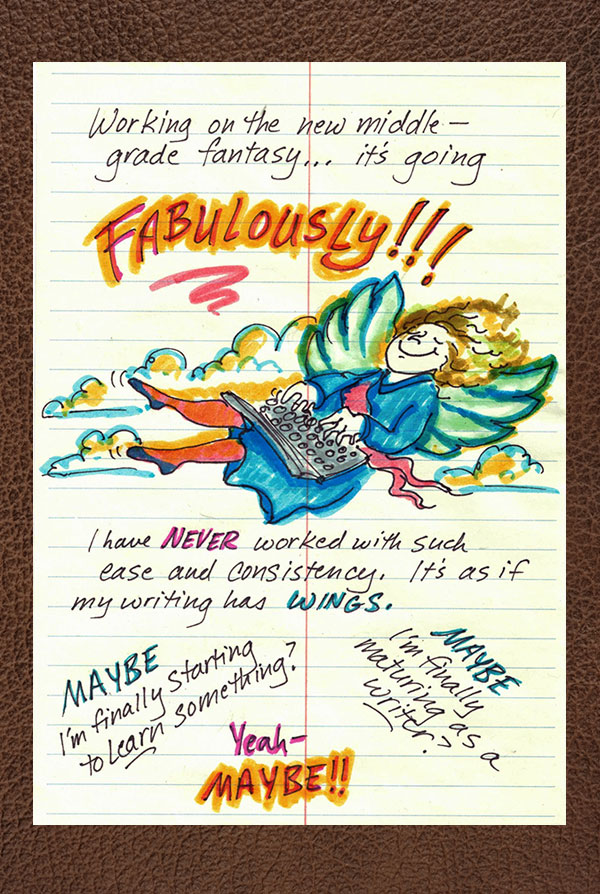 Working on the new middle-
grade fantasy... it's going
FABULOUSLY!!!
I have NEVER worked with such
ease and consistency. It's as if
my writing has WINGS.
MAYBE
I'm finally starting
to learn something?
MAYBE
I'm finally
maturing as a
writer?
Yeah-
MAYBE!!